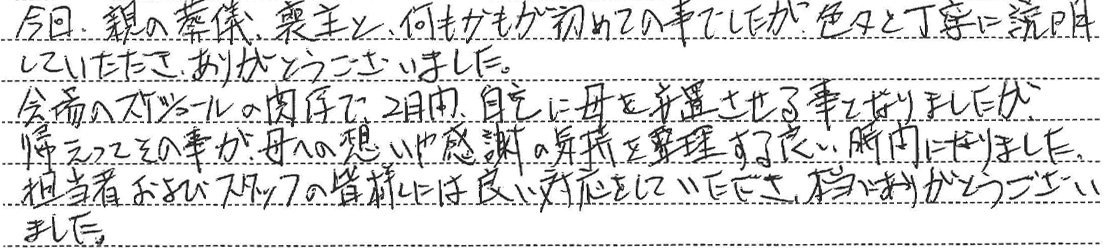 今回、親の葬儀、喪主と、何もかもが初めての事でしたが、色々と丁寧に説明
していただき、ありがとうございました。
会場のスケジュールの関係で、2日間、自宅に母を安置させる事となりましたが、
帰えってその事が、母への想いや感謝の気持を整理する良い時間になりました。
担当者およびスタッフの皆様には良い対応をしていただき、本当にありがとうござい
ました。